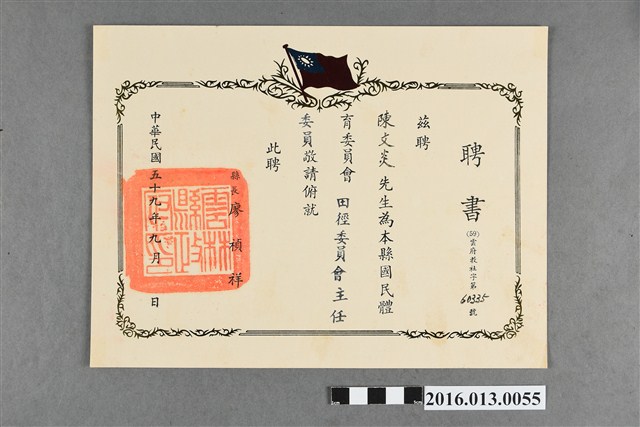 聘書
(59)雲府教社字第60335號
茲聘
陳文炎先生為本縣國民體
育委員會 田徑委員會主任
委員敬請俯就
此聘
縣長 廖禎祥
雲林縣政府印
中華民國五十九年九月 日
2016.013.0055